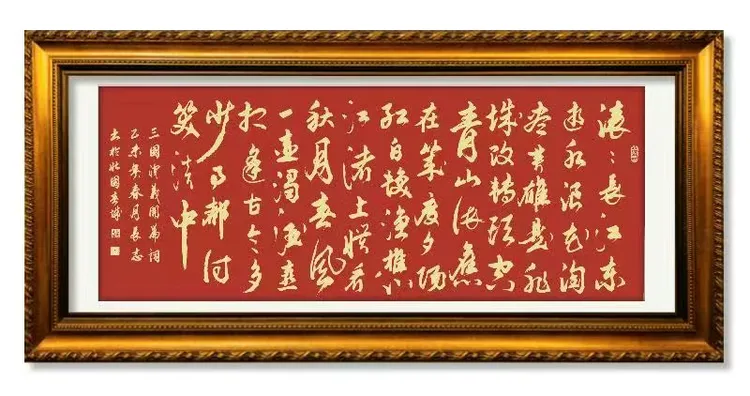 滚〻長江东
逝水浪花淘
尽英雄是非
成败转头空
青山依旧
在幾度夕陽
红白发渔樵
江渚上惯看
秋月春风
一壶濁酒喜
相逢古今多
少事都付
笑谈中
三國演義開篇词
乙未年春月長志